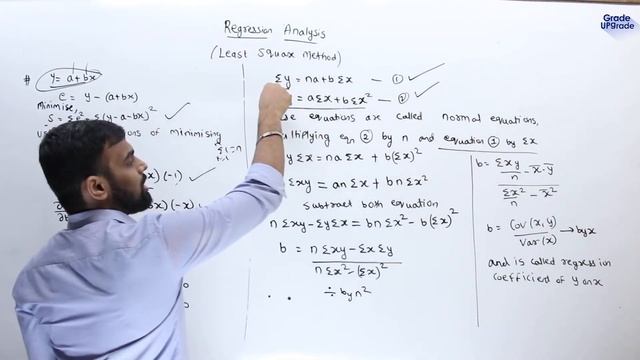 Grade
UPgrade
Regression Analysis
(Least Square Method)
# y = a + bx
e = y - (a+bx)
minimise,
S = Σe² = Σ(y-a-bx)²
ions of minimising
Σ1=n
i=1
x)(-1)
bx)(-x)
Σy = na+bΣx — ①
= aΣx+bΣx² — ②
equations are called normal equations,
multiplying eqn ② by n and equation ① by Σx
ΣyΣx = naΣx + b(Σx)²
Σxy = anΣx + bnΣx²
subtract both equation
nΣxy-ΣyΣx = bnΣx² - b(Σx)²
b = nΣxy-ΣxΣy
nΣx²-(Σx)²
÷ by n²
b = Σxy/n - x̄.ȳ
Σx²/n - x̄²
b = Cov(x,y) → byx
Var(x)
and is called regression
coefficient of y on x